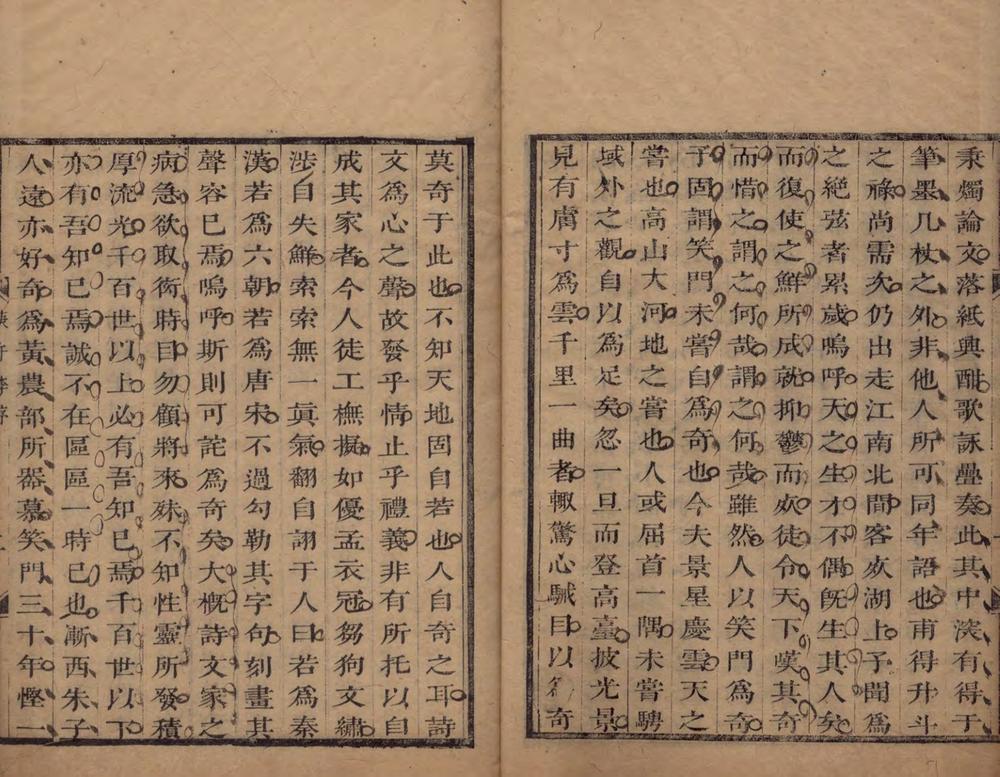 秉燭論文落紙興酣歌詠疊奏此其中淡有得于
筆墨几杖之外非他人所可同年語也甫得升斗
之祿尚需矣仍出走江南北間客歿湖上予聞爲
之絕弦者累歲嗚呼天之生才不偶旣生其人矣
而復使之鮮所成就抑鬱而歿徒令天下嘆其奇
而惜之謂之何哉謂之何哉雖然人以笑門爲奇
予固謂笑門未嘗自爲奇也今夫景星慶雲天之
嘗也高山大河地之嘗也人或屈首一隅未嘗騁
域外之觀自以爲足矣忽一旦而登高臺披光景
見有膚寸爲雲千里一曲者輙驚心駴目以爲奇
莫奇于此也不知天地固自若也人自奇之耳詩
文爲心之聲故發乎情止乎禮義非有所托以自
成其家者今人徒工橅擬如優孟衣冠芻狗文繡
涉自失鮮索索無一眞氣翻自詡于人曰若爲秦
漢若爲六朝若爲唐宋不過勾勒其字句刻畫其
聲容巳焉嗚呼斯則可詫爲奇矣大概詩文家之
病急欲取衒時目勿顧將來殊不知性靈所發積
厚流光千百世以上必有吾知巳焉千百世以下
亦有吾知巳焉誠不在區區一時巳也漸西朱子
人遠亦好奇爲黃農部所器慕笑門三十年慳一